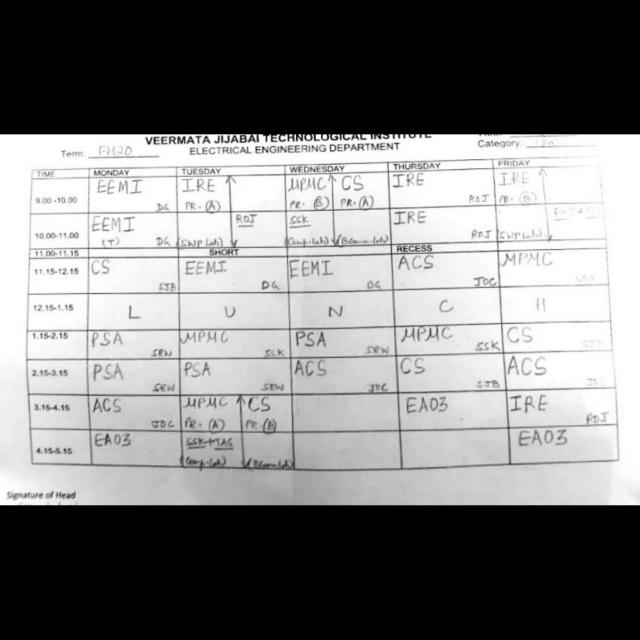 VEERMATA JIJABAI TECHNOLOGICAL INSTITUTE
Term: FH20 ELECTRICAL ENGINEERING DEPARTMENT Category:
TIME MONDAY TUESDAY WEDNESDAY THURSDAY FRIDAY
9.00 -10.00 EEMI DG IRE PR. (A) MPMC PR. (B) CS PR. (A) IRE ROJ IRE PR. (B)
10.00-11.00 EEMI (T) DG ROJ (SWP Lab) SSK (Comp. Lab) IRE ROJ (SWP Lab)
11.00-11.15 SHORT RECESS
11.15-12.15 CS SJB EEMI DG EEMI DG ACS JOC MPMC SSK
12.15-1.15 L U N C H
1.15-2.15 PSA SRW MPMC SSK PSA SRW MPMC SSK CS SJB
2.15-3.15 PSA SRW PSA SRW ACS JOC CS SJB ACS JOC
3.15-4.15 ACS JOC MPMC PR. (A) CS PR. (B) EA03 IRE ROJ
4.15-5.15 EA03 SSK-MAS (Comp. Lab) EA03
Signature of Head